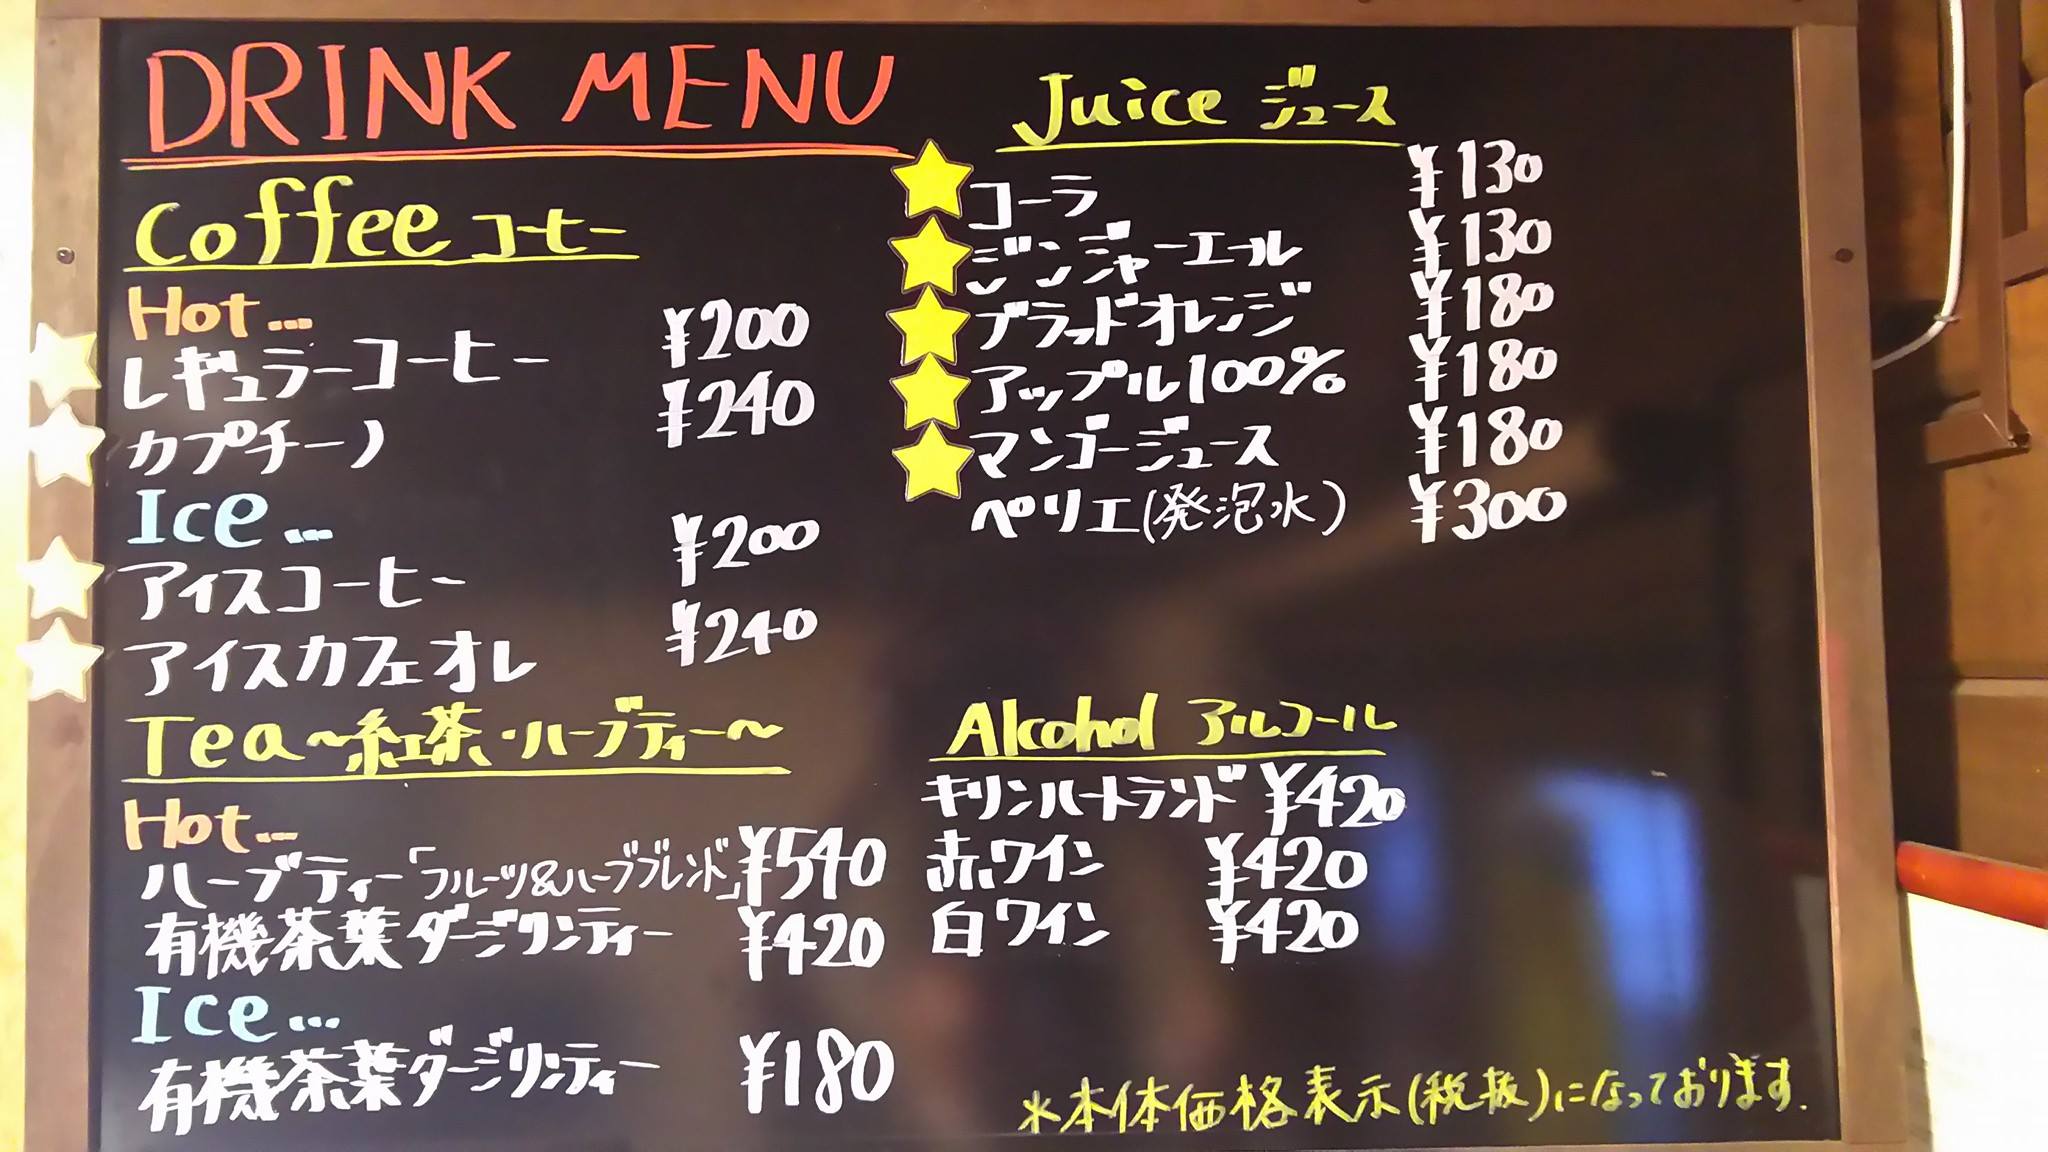 DRINK MENU
Coffee コーヒー
Hot...
レギュラーコーヒー ¥200
カプチーノ ¥240
Ice...
アイスコーヒー ¥200
アイスカフェオレ ¥240
Tea～紅茶・ハーブティー～
Hot...
ハーブティー「フルーツ&ハーブブレンド」 ¥540
有機茶葉ダージリンティー ¥420
Ice...
有機茶葉ダージリンティー ¥180
Juice ジュース
コーラ ¥130
ジンジャーエール ¥130
ブラッドオレンジ ¥180
アップル100% ¥180
マンゴージュース ¥180
ペリエ(発泡水) ¥300
Alcohol アルコール
キリンハートランド ¥420
赤ワイン ¥420
白ワイン ¥420
※本体価格表示(税抜)になっております.